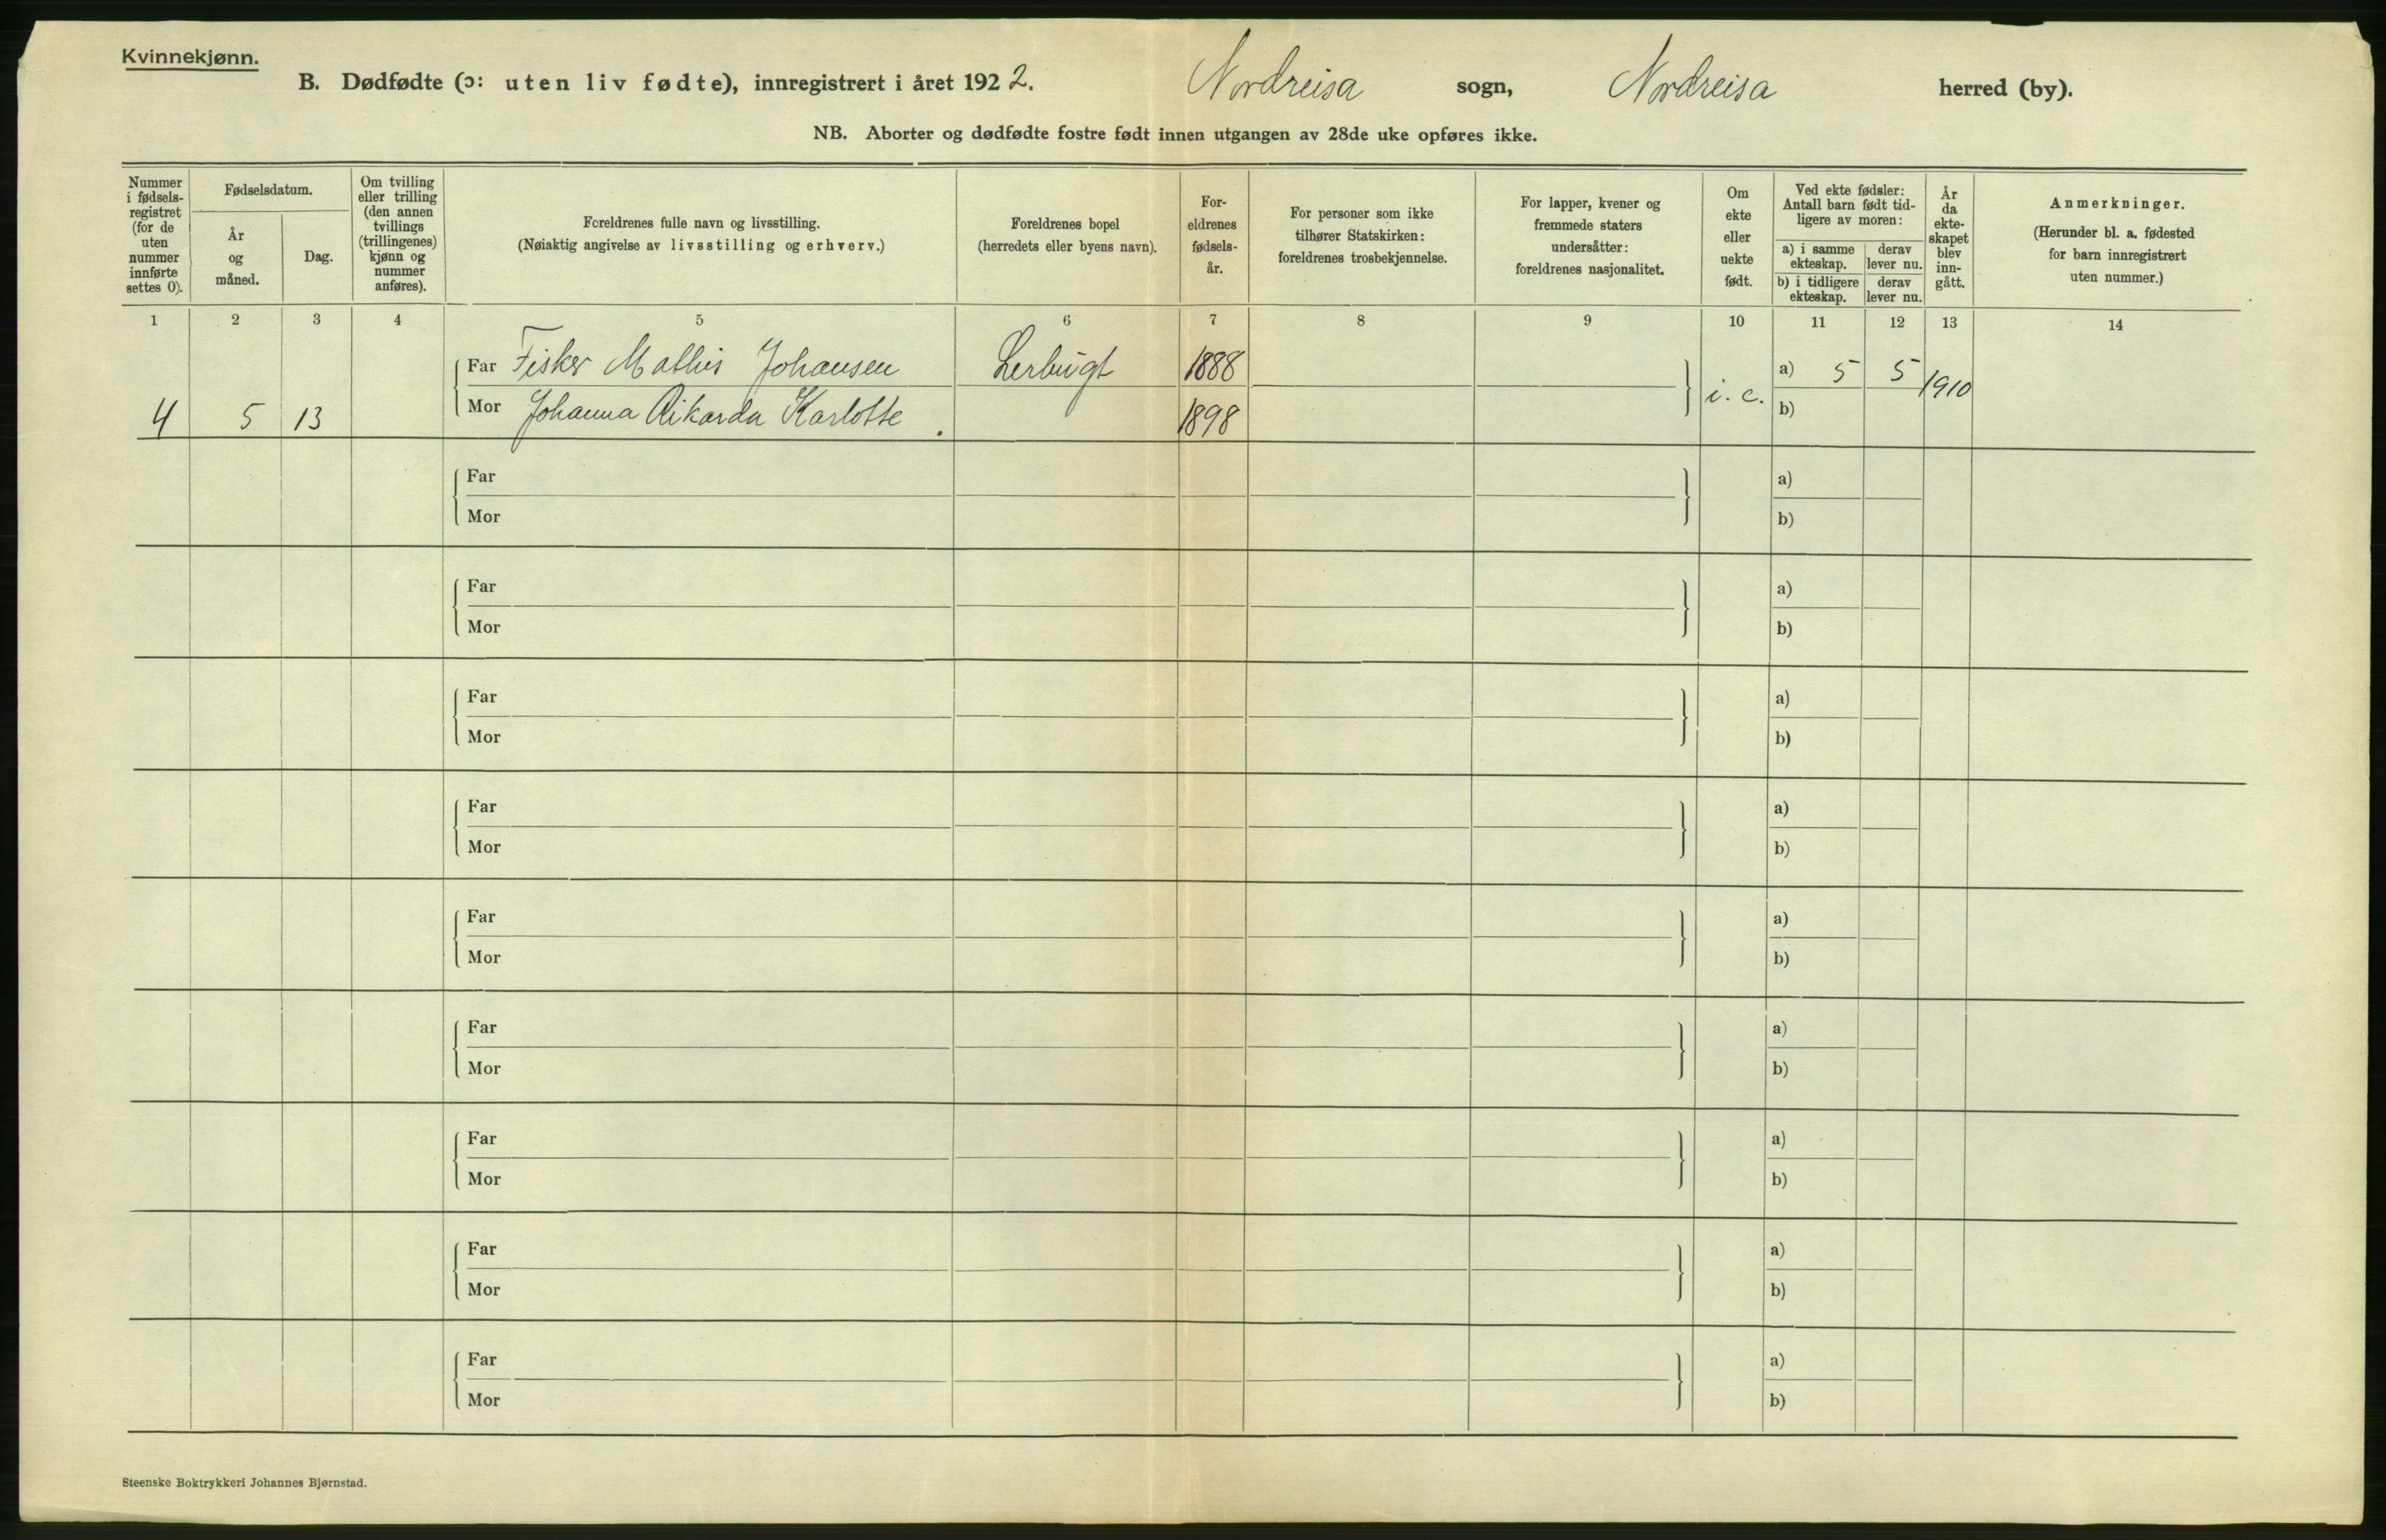 Kvinnekjønn.
B. Dødfødte (ɔ: uten liv fødte), innregistrert i året 1922. Nordreisa sogn, Nordreisa herred (by).
NB. Aborter og dødfødte fostre født innen utgangen av 28de uke opføres ikke.
Nummer i fødsels-registret (for de uten nummer innførte settes 0).
Fødselsdatum.
År og måned.
Dag.
Om tvilling eller trilling (den annen tvillings (trillingenes) kjønn og nummer anføres).
Foreldrenes fulle navn og livsstilling.
(Nøiaktig angivelse av livsstilling og erhverv.)
Foreldrenes bopel
(herredets eller byens navn).
For-eldrenes fødsels-år.
For personer som ikke tilhører Statskirken: foreldrenes trosbekjennelse.
For lapper, kvener og fremmede staters undersåtter: foreldrenes nasjonalitet.
Om ekte eller uekte født.
Ved ekte fødsler: Antall barn født tid-ligere av moren:
a) i samme ekteskap.
derav lever nu.
b) i tidligere ekteskap.
derav lever nu.
År da ekte-skapet blev inn-gått.
Anmerkninger.
(Herunder bl. a. fødested for barn innregistrert uten nummer.)
1 2 3 4 5 6 7 8 9 10 11 12 13 14
Far Fisker Mathis Johansen Lerbugt 1888 a) 5 5 1910
4 5 13 Mor Johanna Rikarda Karlotte 1898 b)
Far a)
Mor b)
Far a)
Mor b)
Far a)
Mor b)
Far a)
Mor b)
Far a)
Mor b)
Far a)
Mor b)
Far a)
Mor b)
Far a)
Mor b)
Far a)
Mor b)
Steenske Boktrykkeri Johannes Bjørnstad.